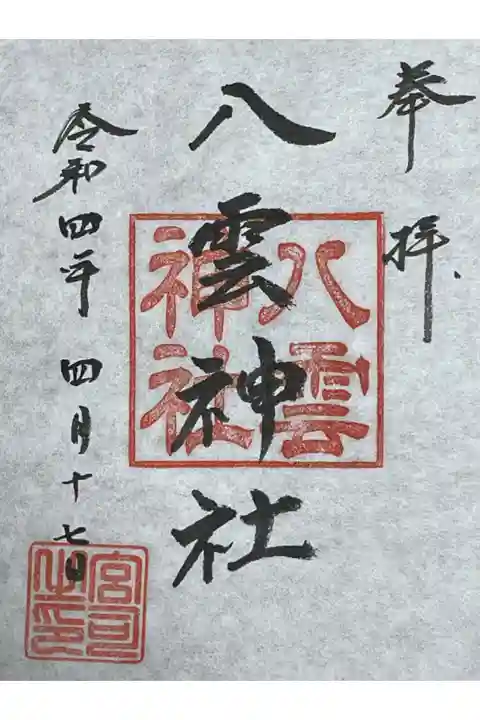 奉拝
八雲神社
八雲
神社
令和四年 四月十七日
宮司
之印